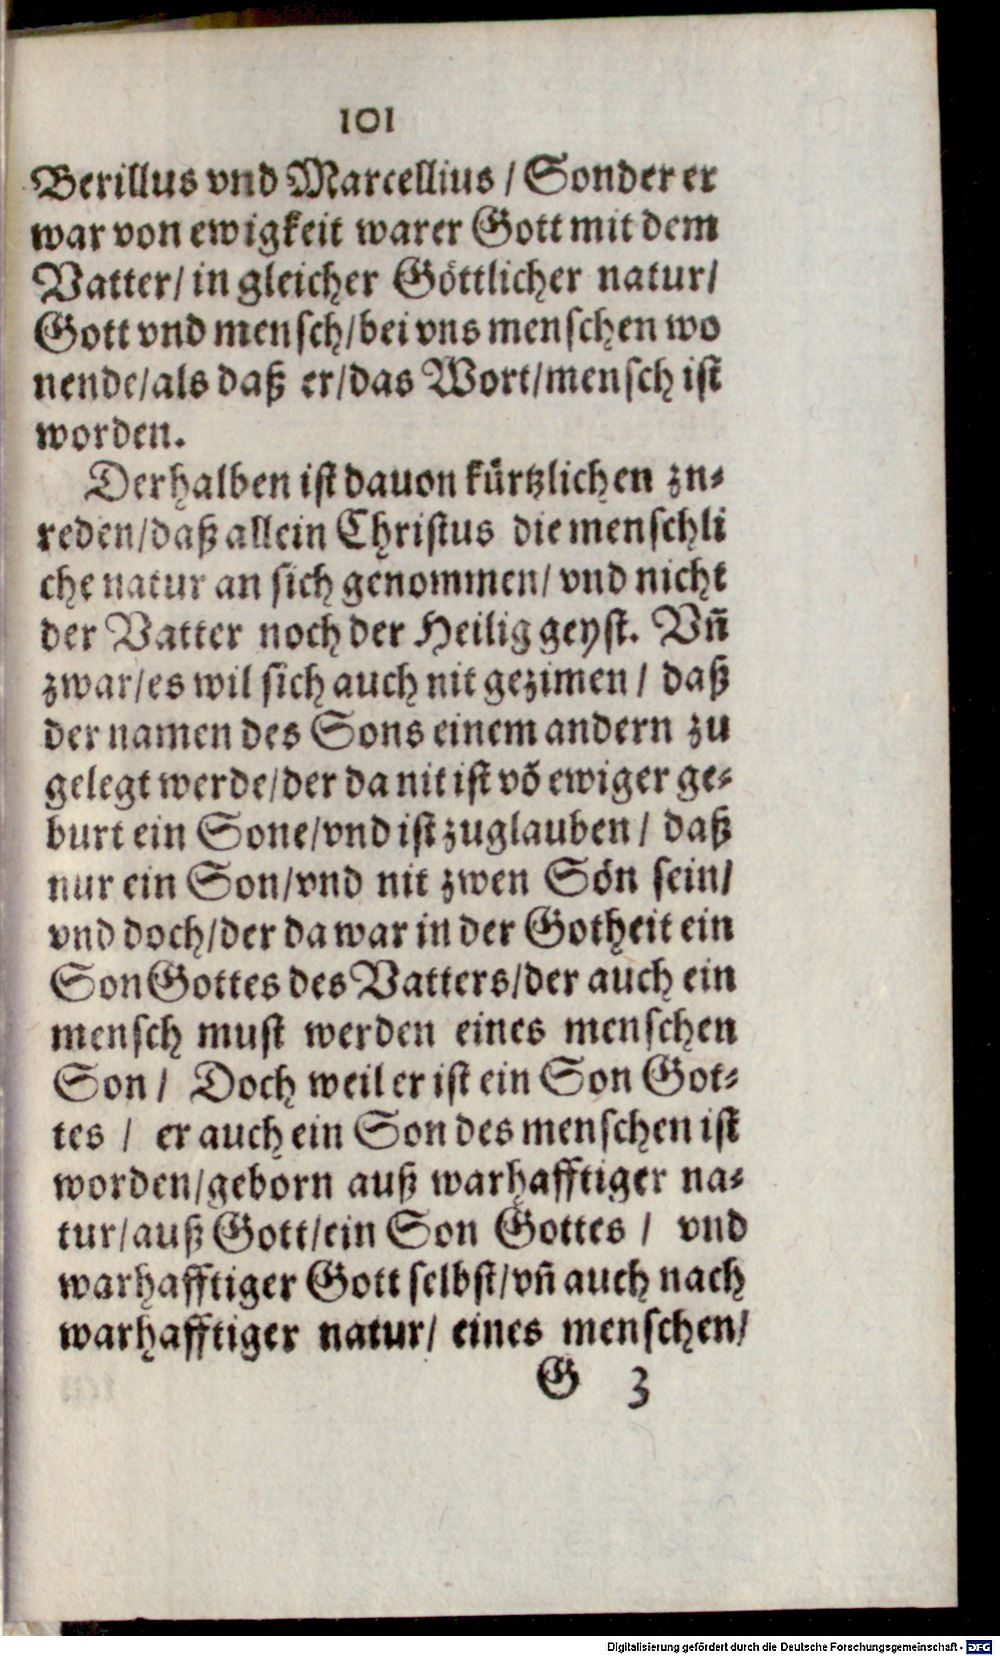 101
Berillus vnd Marcellius / Sonder er
war von ewigkeit warer Gott mit dem
Vatter/ in gleicher Göttlicher natur/
Gott vnd mensch/bei vns menschen wo
nende/als daß er/das Wort/mensch ist
worden.
Derhalben ist dauon kürtzlichen zn-
reden/daß allein Christus die menschli
che natur an sich genommen/ vnd nicht
der Vatter noch der Heilig geyst. Vñ
zwar/es wil sich auch nit gezimen / daß
der namen des Sons einem andern zu
gelegt werde/der da nit ist võ ewiger ge-
burt ein Sone/vnd ist zuglauben / daß
nur ein Son/vnd nit zwen Sön sein/
vnd doch/der da war in der Gotheit ein
Son Gottes des Vatters/der auch ein
mensch must werden eines menschen
Son / Doch weil er ist ein Son Got-
tes / er auch ein Son des menschen ist
worden/geborn auß warhafftiger na-
tur/auß Gott/ein Son Gottes / vnd
warhafftiger Gott selbst/vñ auch nach
warhafftiger natur/ eines menschen/
G 3
Digitalisierung gefördert durch die Deutsche Forschungsgemeinschaft - DFG